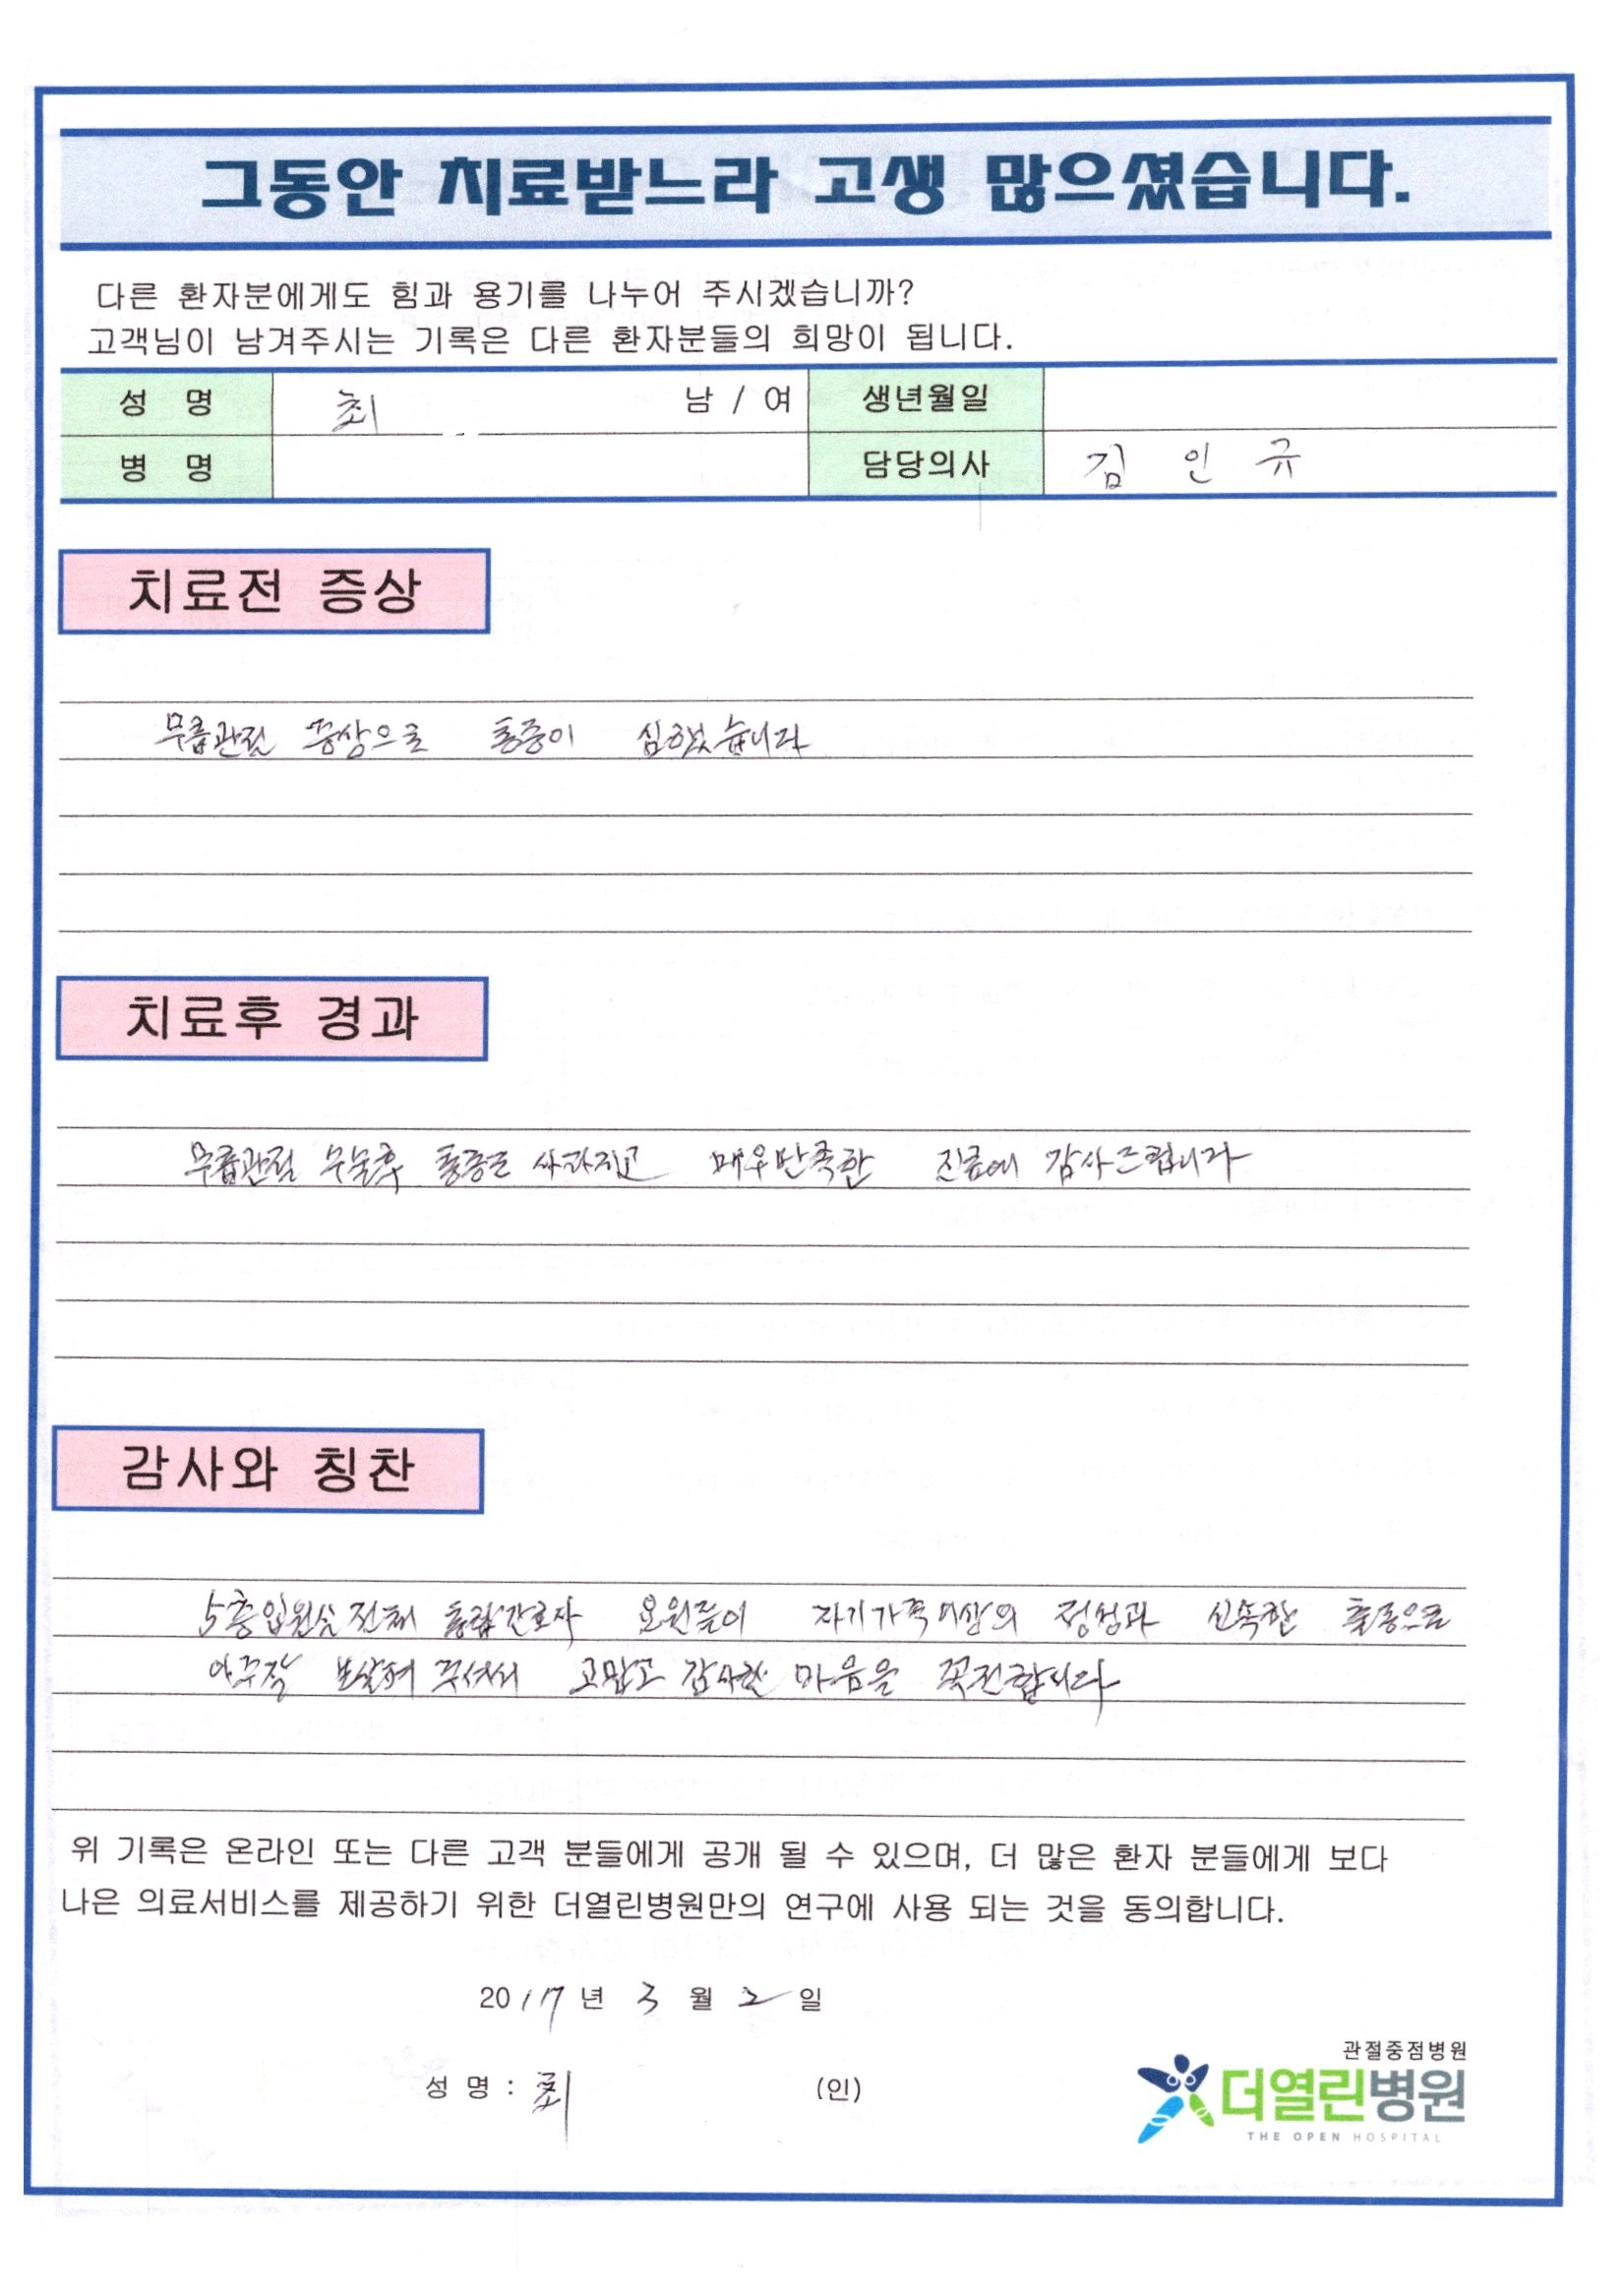 그동안 치료받느라 고생 많으셨습니다.
다른 환자분에게도 힘과 용기를 나누어 주시겠습니까?
고객님이 남겨주시는 기록은 다른 환자분들의 희망이 됩니다.
성 명 최 남 / 여 생년월일
병 명 담당의사 김 인 규
치료전 증상
무릎관절 증상으로 통증이 심했습니다
치료후 경과
무릎관절 수술후 통증도 사라지고 매우만족한 진료에 감사드립니다
감사와 칭찬
5층입원실 전체 통합간호사 요원들이 자기가족이상의 정성과 신속한 활동으로
아주잘 보살펴 주셔서 고맙고 감사한 마음을 꼭전합니다
위 기록은 온라인 또는 다른 고객 분들에게 공개 될 수 있으며, 더 많은 환자 분들에게 보다
나은 의료서비스를 제공하기 위한 더열린병원만의 연구에 사용 되는 것을 동의합니다.
2017년 3 월 2 일
성 명 : 최 (인)
관절중점병원
더열린병원
THE OPEN HOSPITAL